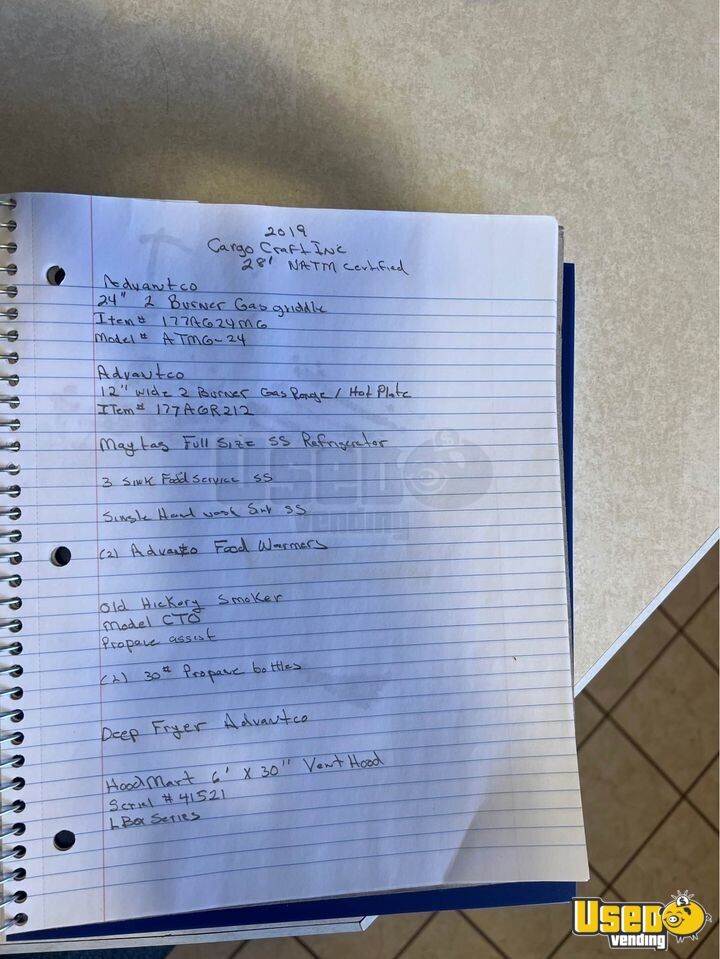 2019
Cargo Craft Inc
28' NATM Certified
Advantco
24" 2 Burner Gas griddle
Item# 177AG24MG
Model# ATMG-24
Advantco
12" wide 2 Burner Gas Range / Hot Plate
ITem# 177AGR212
Maytag Full Size SS Refrigerator
3 Sink Food Service SS
Single Hand wash Sink SS
(2) Advantco Food Warmers
Old Hickory Smoker
Model CTO
Propane assist
(2) 30# Propane bottles
Deep Fryer Advantco
HoodMart 6' X 30" Vent Hood
Serial #41521
LBOX Series
USED
vending
USED
vending